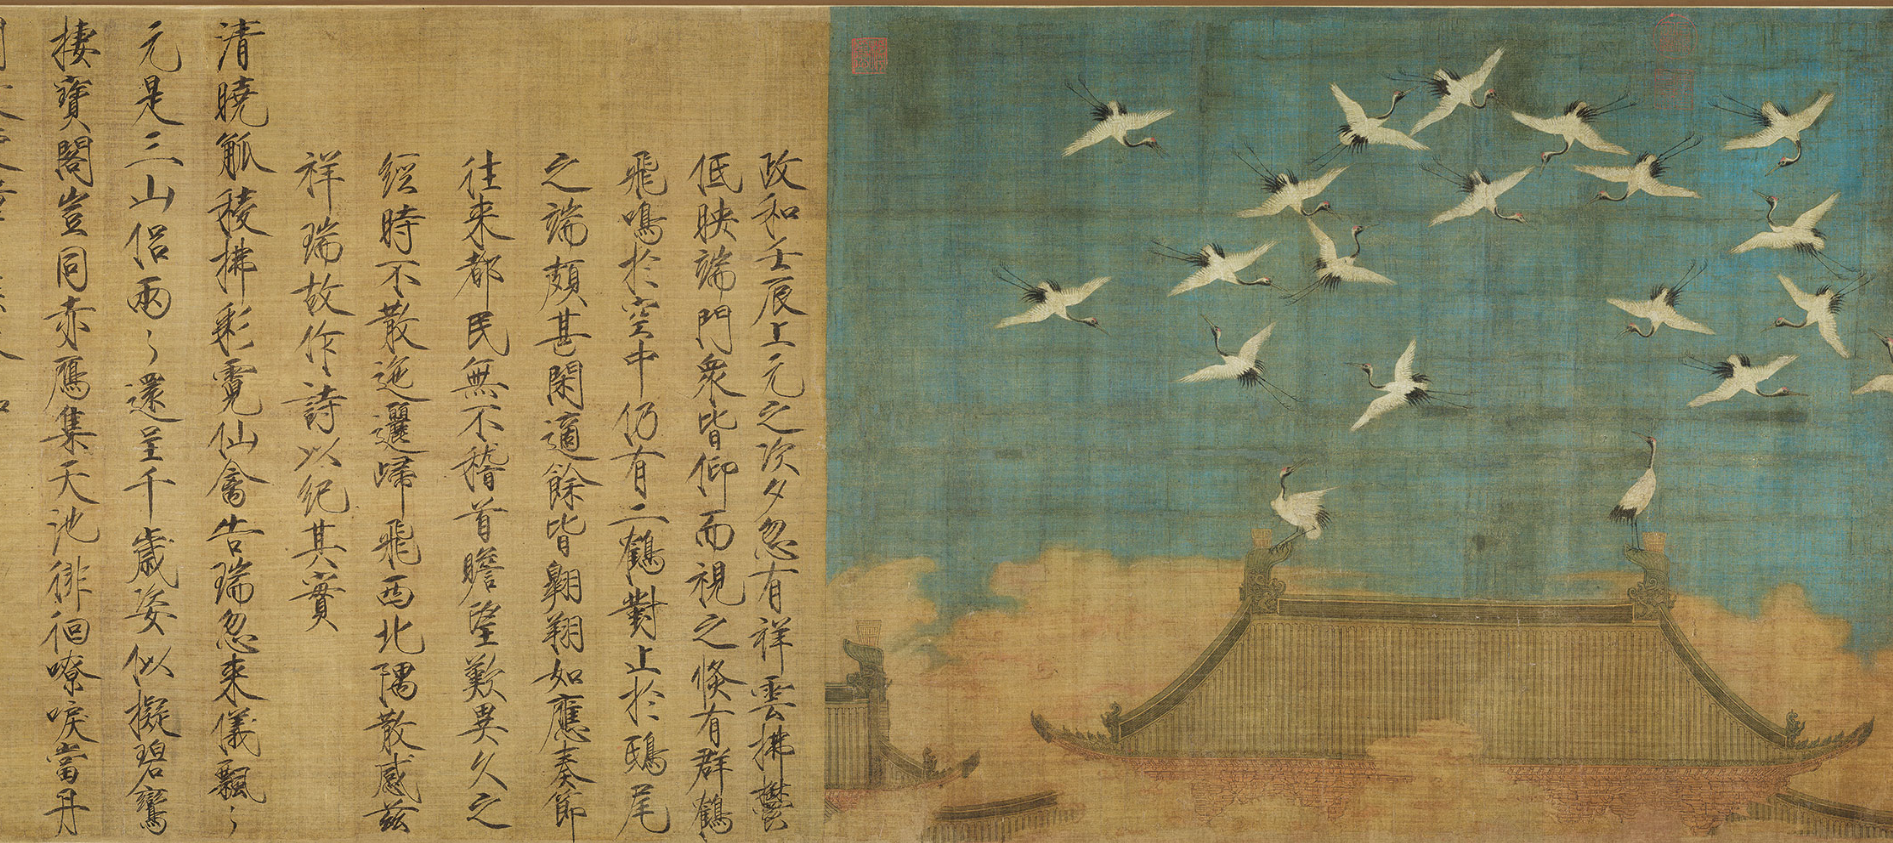 政和壬辰上元之次夕忽有祥雲拂鬱
低映端門衆皆仰而視之倐有群鶴
飛鳴於空中仍有二鶴對止於鴟尾
之端頗甚閑適餘皆翱翔如應奏節
往来都民無不稽首瞻望歎異久之
經時不散迤邐歸飛西北隅散感兹
祥瑞故作詩以紀其實
清曉觚稜拂彩霓仙禽告瑞忽来儀飄〻
元是三山侶兩〻還呈千歲姿似擬碧鸞
棲寶閣豈同赤鴈集天池徘徊嘹唳當丹